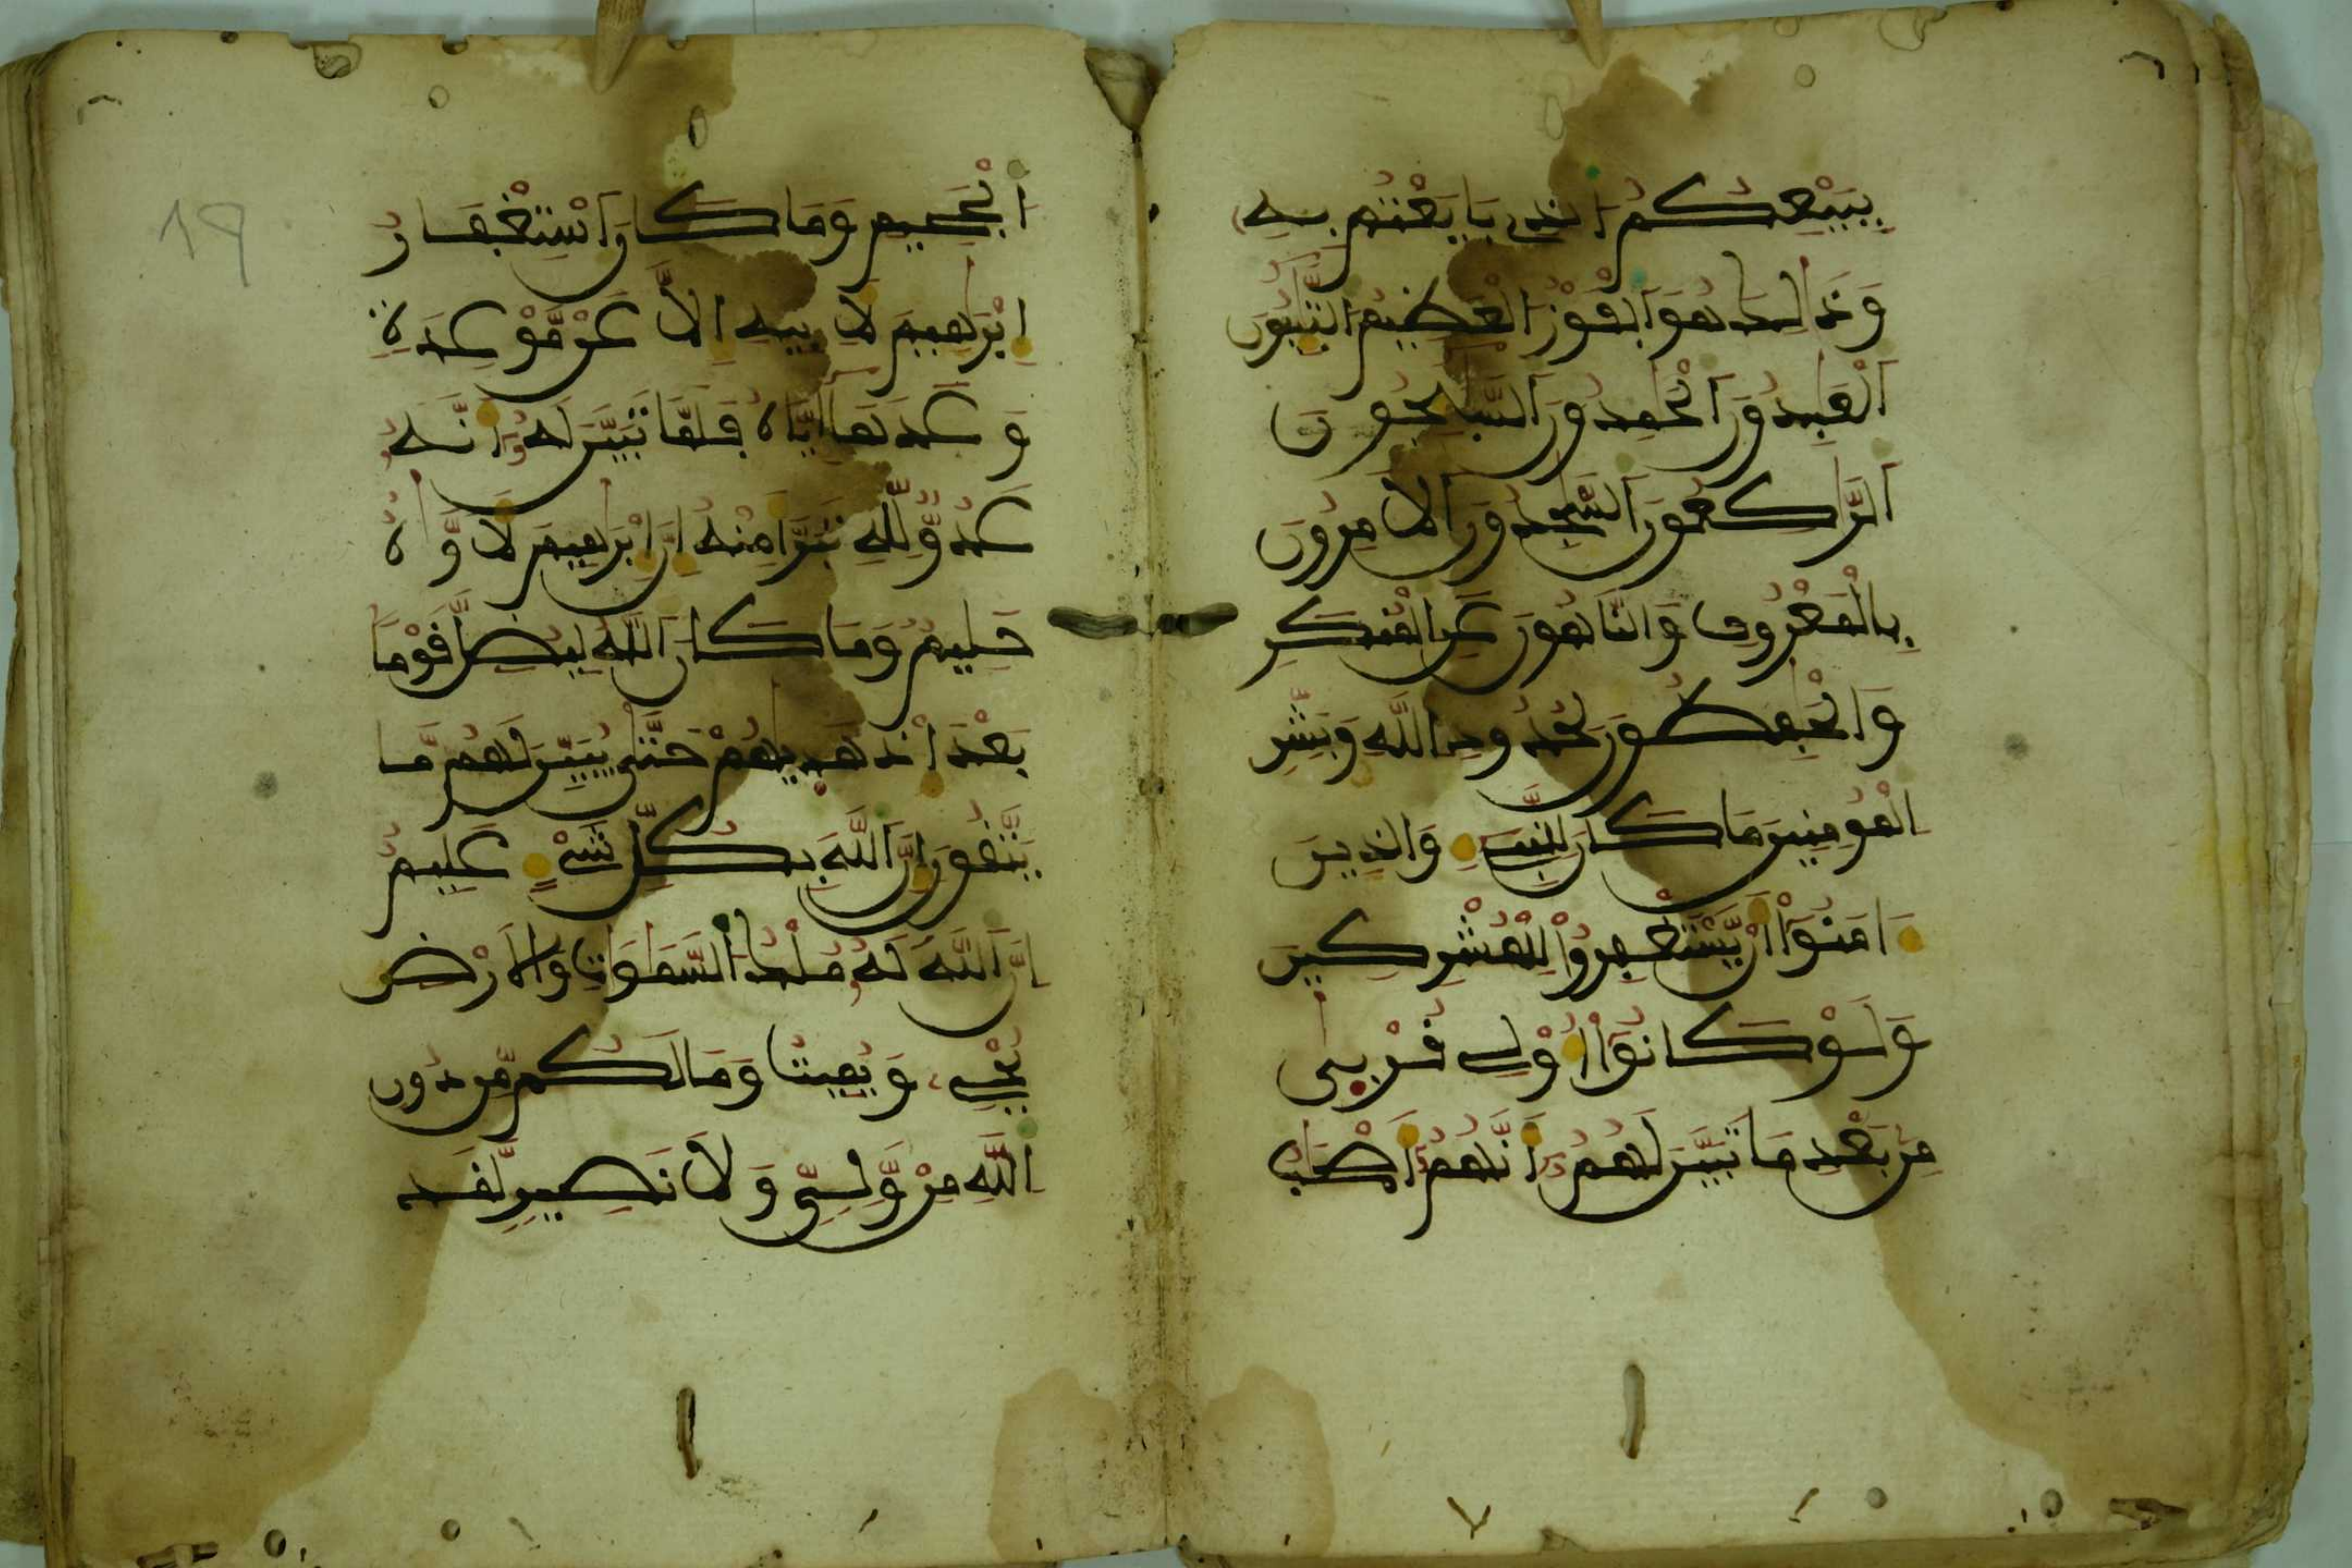 بِبَيْعِكُمُ الذِے بَايَعْتُم بِهِۦ
وَذَٰلِكَ هُوَ اَ۬لْفَوْزُ اُ۬لْعَظِيمُ اُ۬لتَّٰٓئِبُونَ
اَ۬لْعَٰبِدُونَ اَ۬لْحَٰمِدُونَ اَ۬لسَّٰٓئِحُونَ
اَ۬لرَّٰكِعُونَ اَ۬لسَّٰجِدُونَ اَ۬لَامِرُونَ
بِالْمَعْرُوفِ وَالنَّاهُونَ عَنِ اِ۬لْمُنكَرِ
وَالْحَٰفِظُونَ لِحُدُودِ اِ۬للَّهِ وَبَشِّرِ
اِ۬لْمُومِنِينَ مَا كَانَ لِلنَّبِےٓءِ وَالذِينَ
ءَامَنُوٓاْ أَنْ يَّسْتَغْفِرُواْ لِلْمُشْرِكِينَ
وَلَوْ كَانُوٓاْ أُوْلِے قُرْبۭيٰ
مِنۢ بَعْدِ مَا تَبَيَّنَ لَهُمُۥٓ أَنَّهُمُۥٓ أَصْحَٰبُ
اُ۬لْجَحِيمِ وَمَا كَانَ اَ۪سْتِغْفَارُ
إِبْرَٰهِيمَ لِأَبِيهِ إِلَّا عَن مَّوْعِدَةٖ
وَعَدَهَآ إِيَّاهُ فَلَمَّا تَبَيَّنَ لَهُۥٓ أَنَّهُۥ
عَدُوّٞ لِّلهِ تَبَرَّأَ مِنْهُ إِنَّ إِبْرَٰهِيمَ لَأَوَّٰهٌ
حَلِيمٞ وَمَا كَانَ اَ۬للَّهُ لِيُضِلَّ قَوْماَۢ
بَعْدَ إِذْ هَدۭيٰهُمْ حَتَّيٰ يُبَيِّنَ لَهُم مَّا
يَتَّقُونَ إِنَّ اَ۬للَّهَ بِكُلِّ شَےْءٍ عَلِيمٌ
إِنَّ اَ۬للَّهَ لَهُۥ مُلْكُ اُ۬لسَّمَٰوَٰتِ وَالَارْضِ
يُحْيِۦ وَيُمِيتُ وَمَا لَكُم مِّن دُونِ
اِ۬للَّهِ مِنْ وَّلِيّٖ وَلَا نَصِيرٖ لَّقَد
19